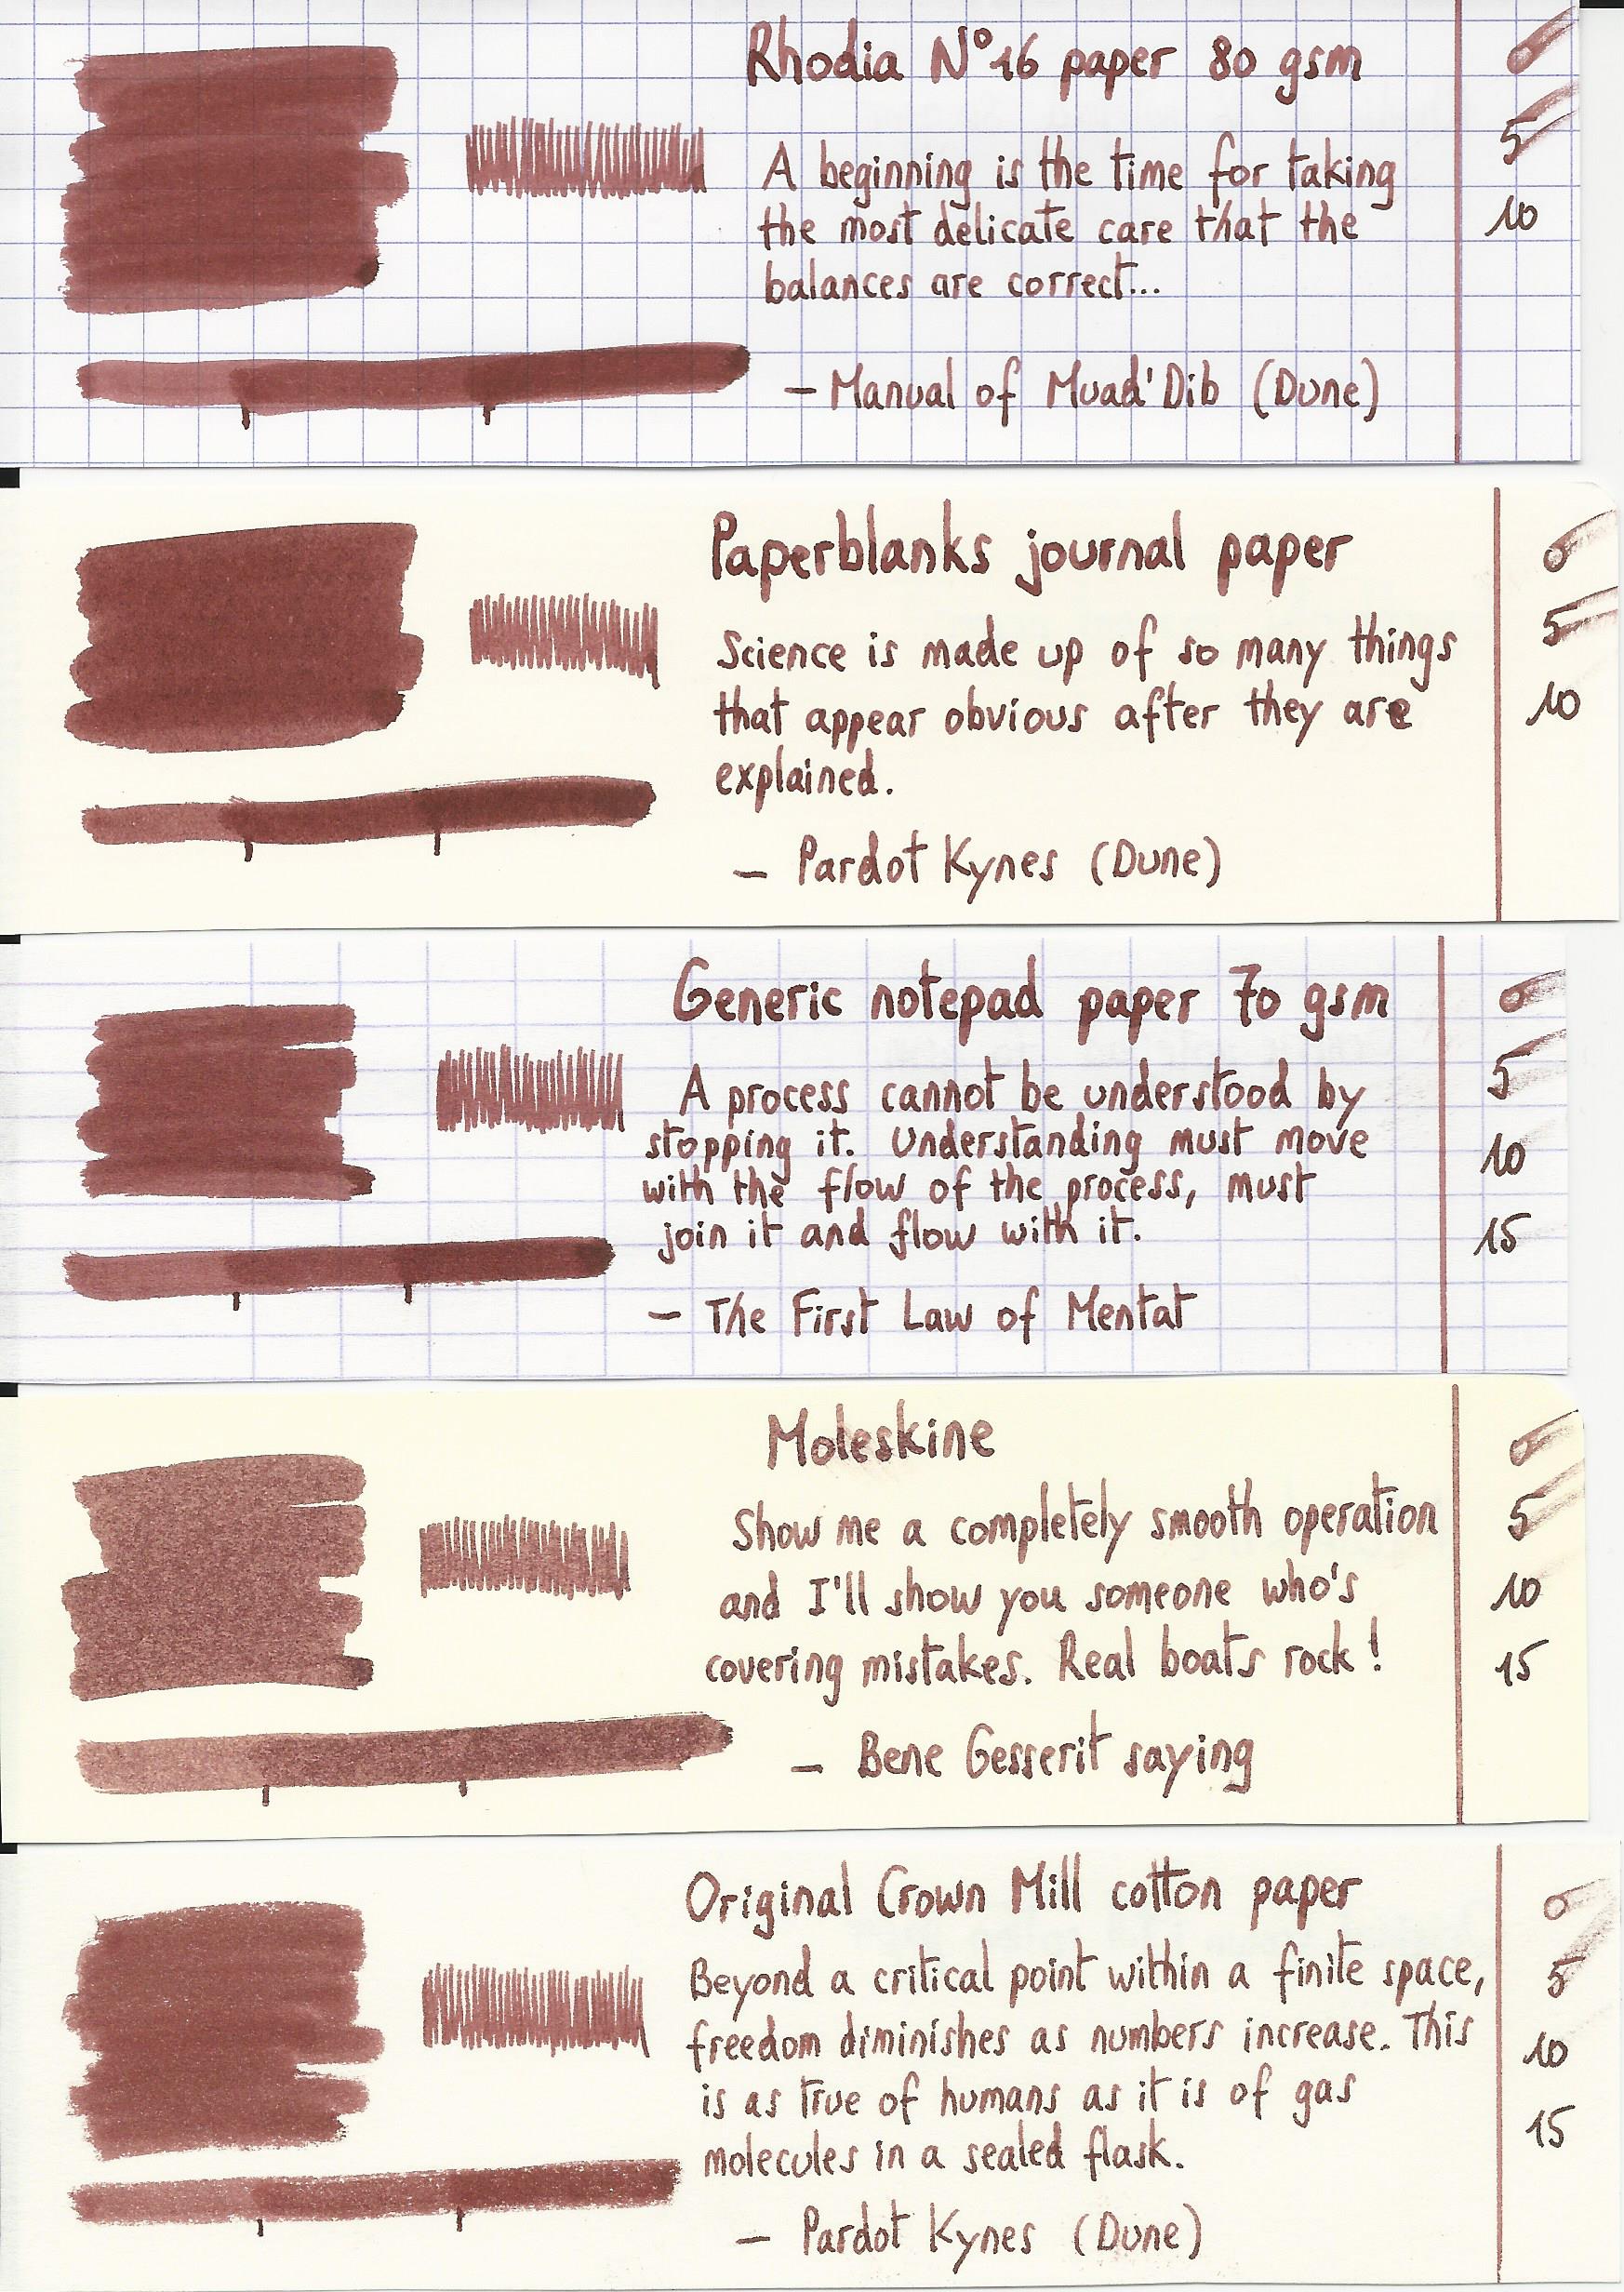 Rhodia N°16 paper 80 gsm
0
A beginning is the time for taking
5
the most delicate care that the
10
balances are correct...
– Manual of Muad'Dib (Dune)
Paperblanks journal paper
0
Science is made up of so many things
5
that appear obvious after they are
10
explained.
– Pardot Kynes (Dune)
Generic notepad paper 70 gsm
0
A process cannot be understood by
5
stopping it. Understanding must move
10
with the flow of the process, must
join it and flow with it.
15
– The First Law of Mentat
Moleskine
0
Show me a completely smooth operation
5
and I'll show you someone who's
10
covering mistakes. Real boats rock!
15
– Bene Gesserit saying
Original Crown Mill cotton paper
0
Beyond a critical point within a finite space,
5
freedom diminishes as numbers increase. This
10
is as true of humans as it is of gas
15
molecules in a sealed flask.
– Pardot Kynes (Dune)